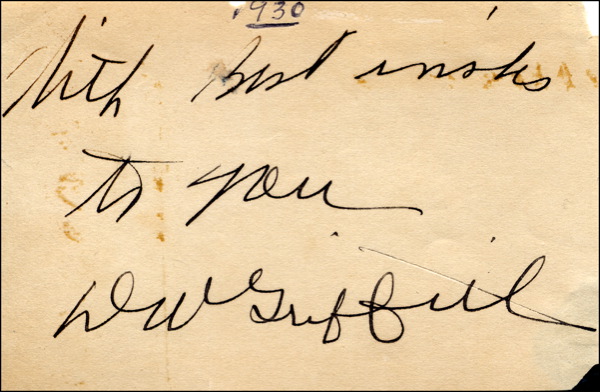 1930
With Best wishes
to you
DW Griffith